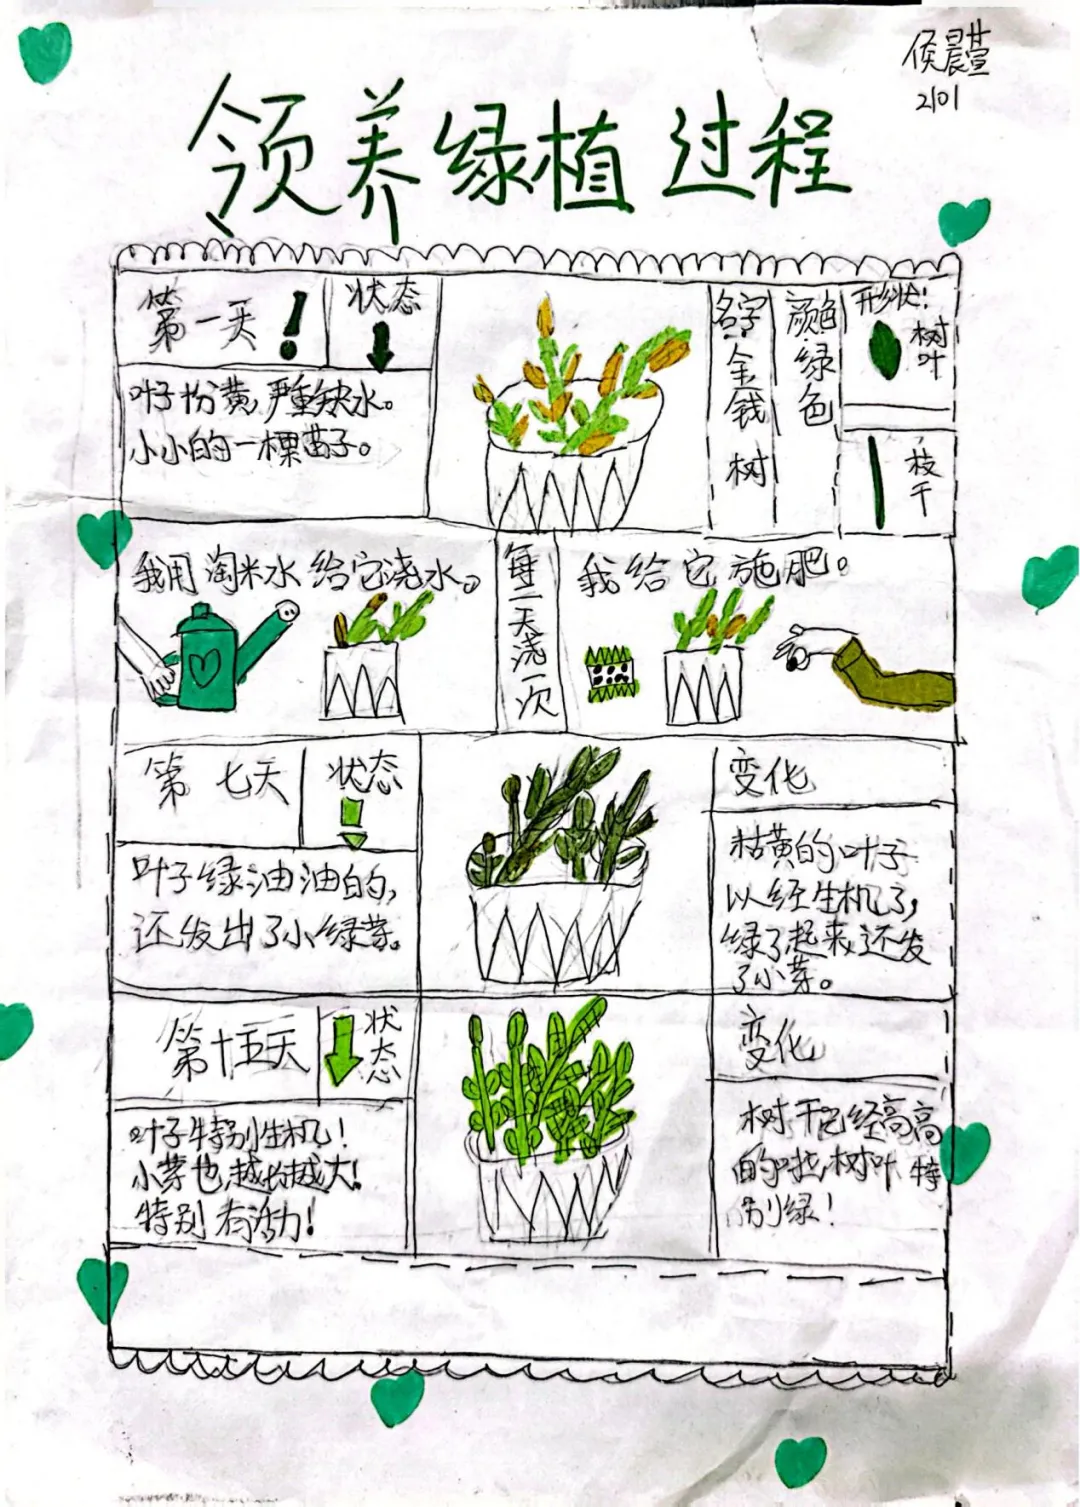 侯晨萱
2101
领养绿植过程
第一天！
状态
叶子扮黄,严重缺水。
小小的一棵苗子。
名字:金钱树
颜色:绿色
形状!
树叶
枝干
我用淘米水给它浇水。
每一天浇一次
我给它施肥。
第七天
状态
叶子绿油油的,
还发出了小绿芽。
变化
枯黄的叶子
以经生机了,
绿了起来,还发
了小芽。
第十五天
状态
叶子特别生机!
小芽也越长越大!
特别有活力!
变化
树干已经高高
的啦,树叶特
别绿!